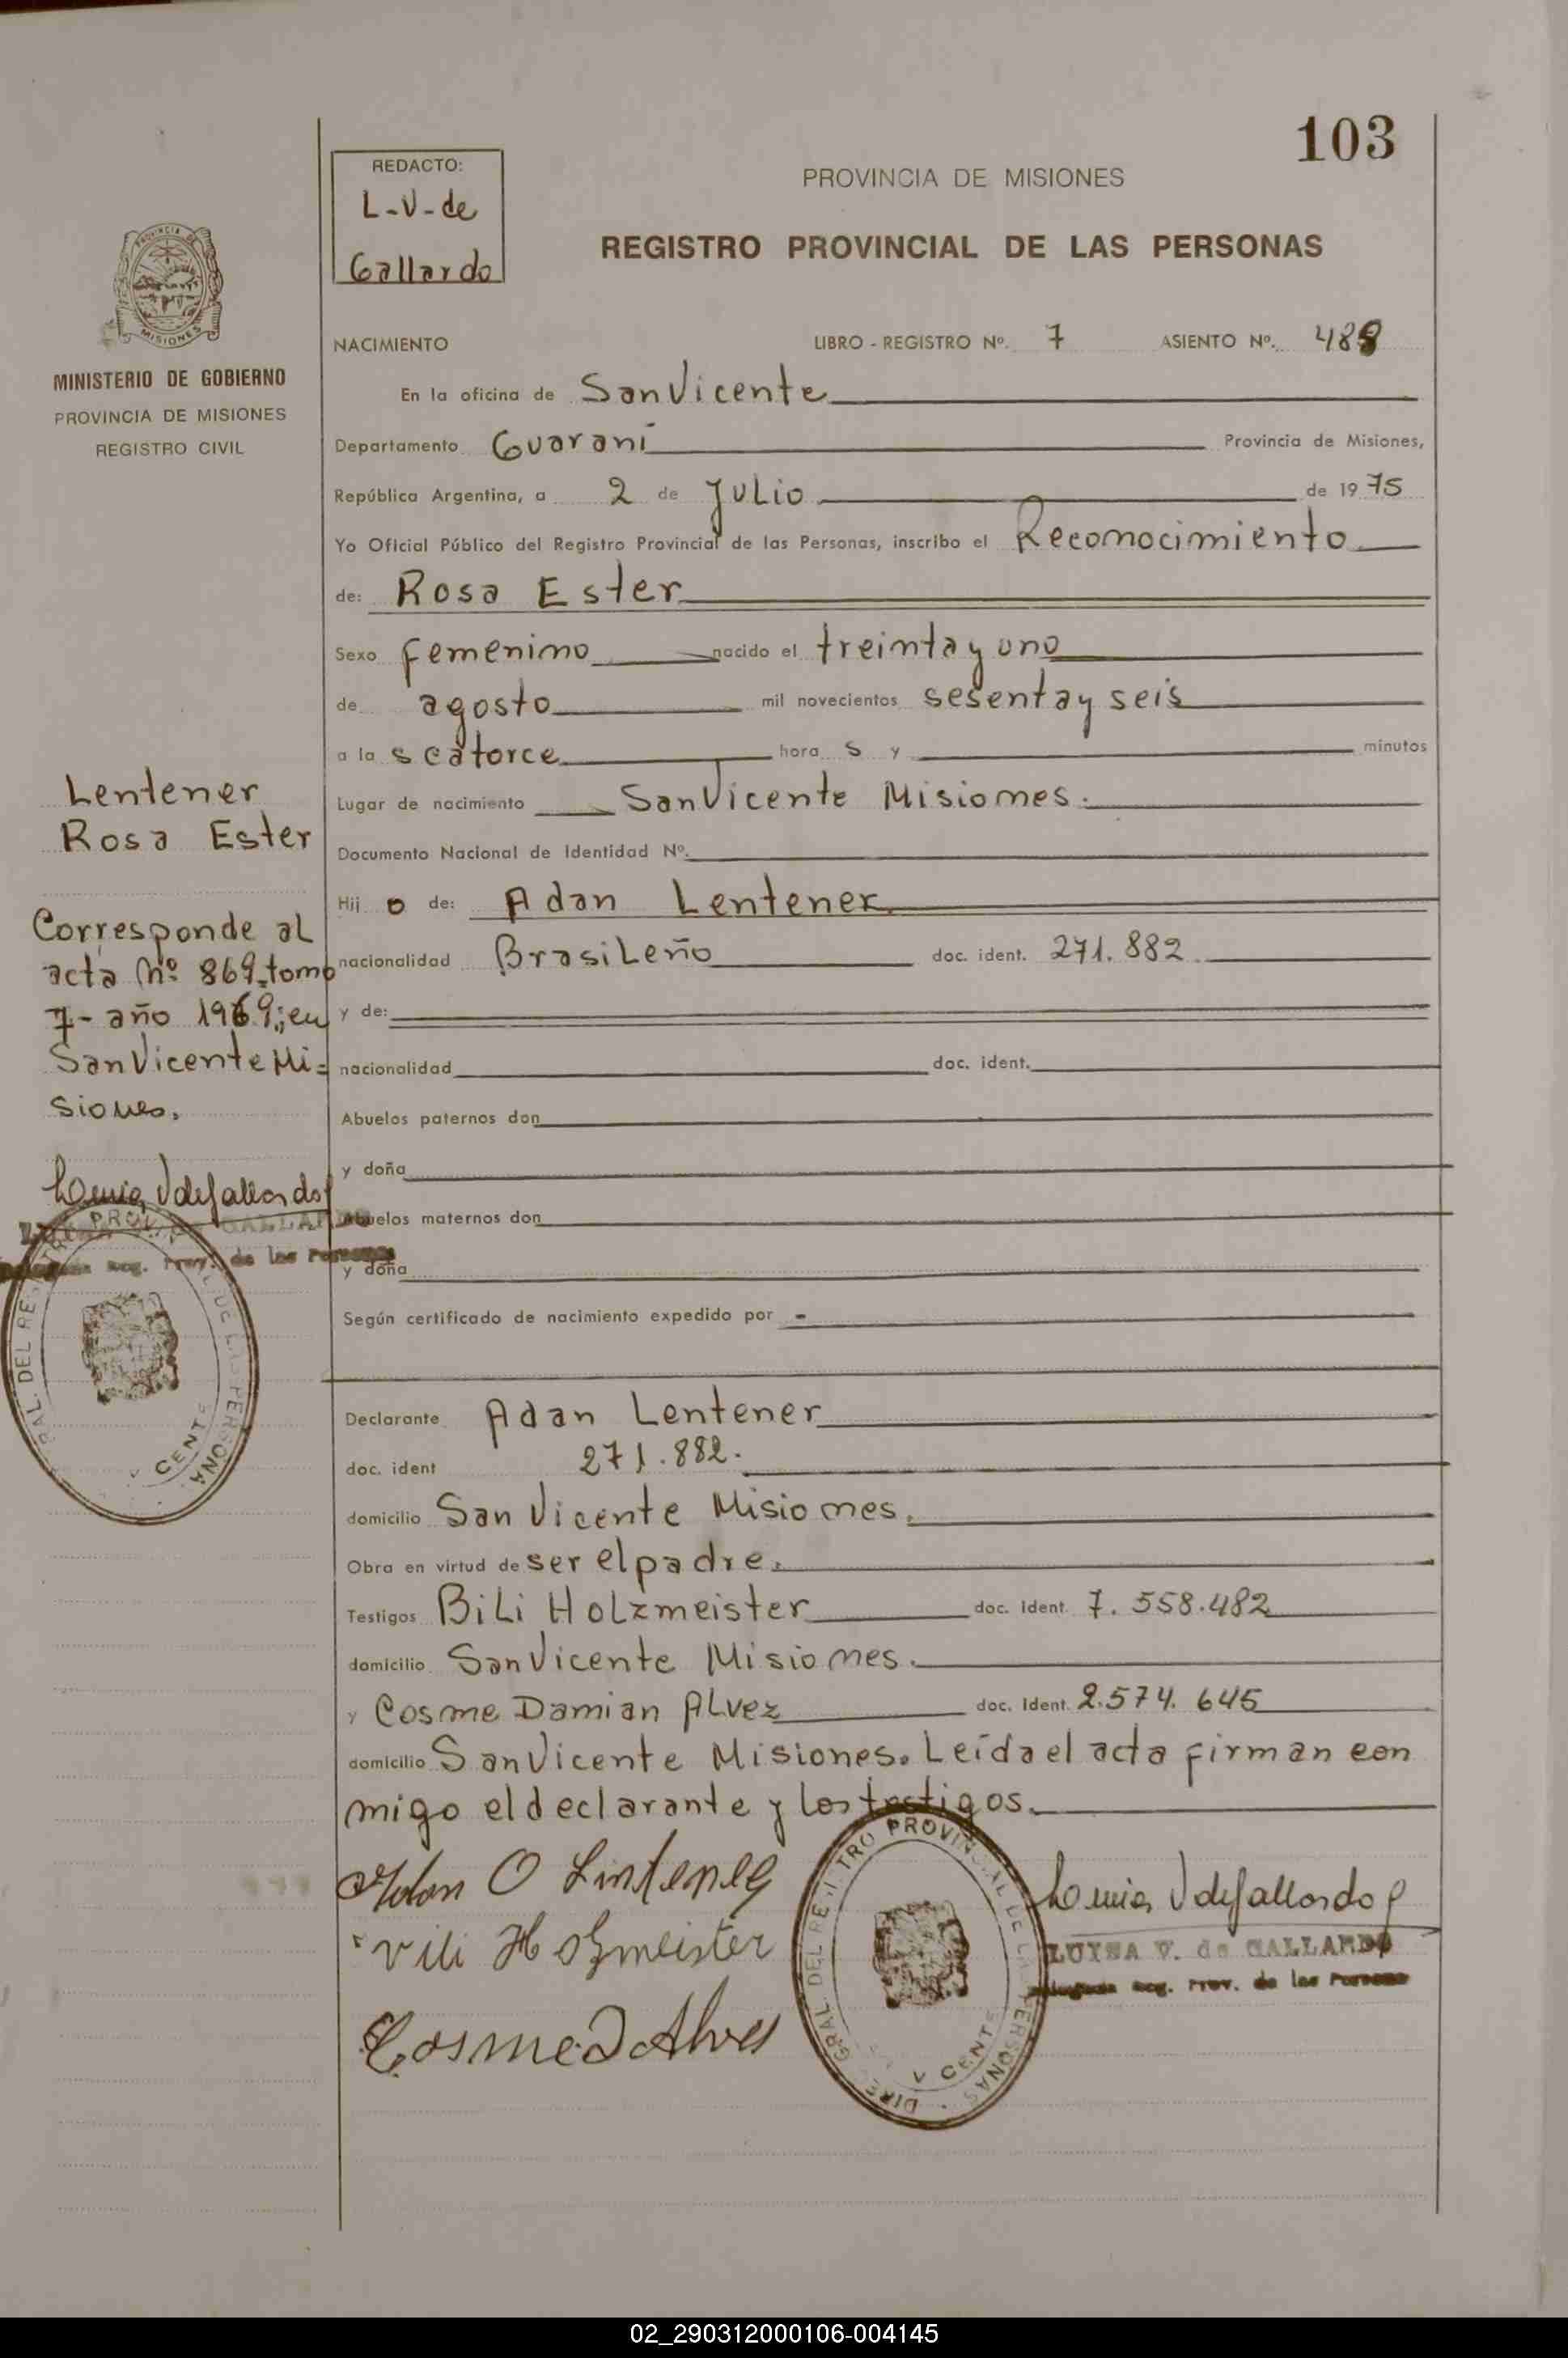 103
REDACTO:
L-V-de
Gallardo
PROVINCIA DE MISIONES
REGISTRO PROVINCIAL DE LAS PERSONAS
MISIONES
MINISTERIO DE GOBIERNO
PROVINCIA DE MISIONES
REGISTRO CIVIL
NACIMIENTO LIBRO - REGISTRO Nº. 7 ASIENTO Nº.
En la oficina de San Vicente
Departamento Guaraní Provincia de Misiones,
República Argentina, a 2 de Julio de 1975
Yo Oficial Público del Registro Provincial de las Personas, inscribo el Reconocimiento
de: Rosa Ester
Sexo femenino nacido el treinta y uno
de agosto mil novecientos sesenta y seis
a las catorce horas y minutos
Lugar de nacimiento San Vicente Misiones.
Documento Nacional de Identidad Nº.
Hijo de: Adan Lentener
nacionalidad Brasileño doc. ident. 271.882
y de:
nacionalidad doc. ident.
Abuelos paternos don
y doña
Abuelos maternos don
y doña
Según certificado de nacimiento expedido por -
Declarante Adan Lentener
doc. ident 271.882.
domicilio San Vicente Misiones.
Obra en virtud de ser el padre.
Testigos Bili Holzmeister doc. Ident. 7.558.482
domicilio San Vicente Misiones.
y Cosme Damian Alvez doc. Ident. 2.574.645
domicilio San Vicente Misiones. Leída el acta firman con
migo el declarante y los testigos.
Lentener
Rosa Ester
Corresponde al
acta Nº 869-tomo
7- año 1969; en
San Vicente Mi=
siones.
Luisa V de Gallardo
Adan O Lintener
Vili Holzmeister
Cosme D Alves
Luisa V de Gallardo
LUISA V. de GALLARDO
Reg. Prov. de las Personas
02_290312000106-004145